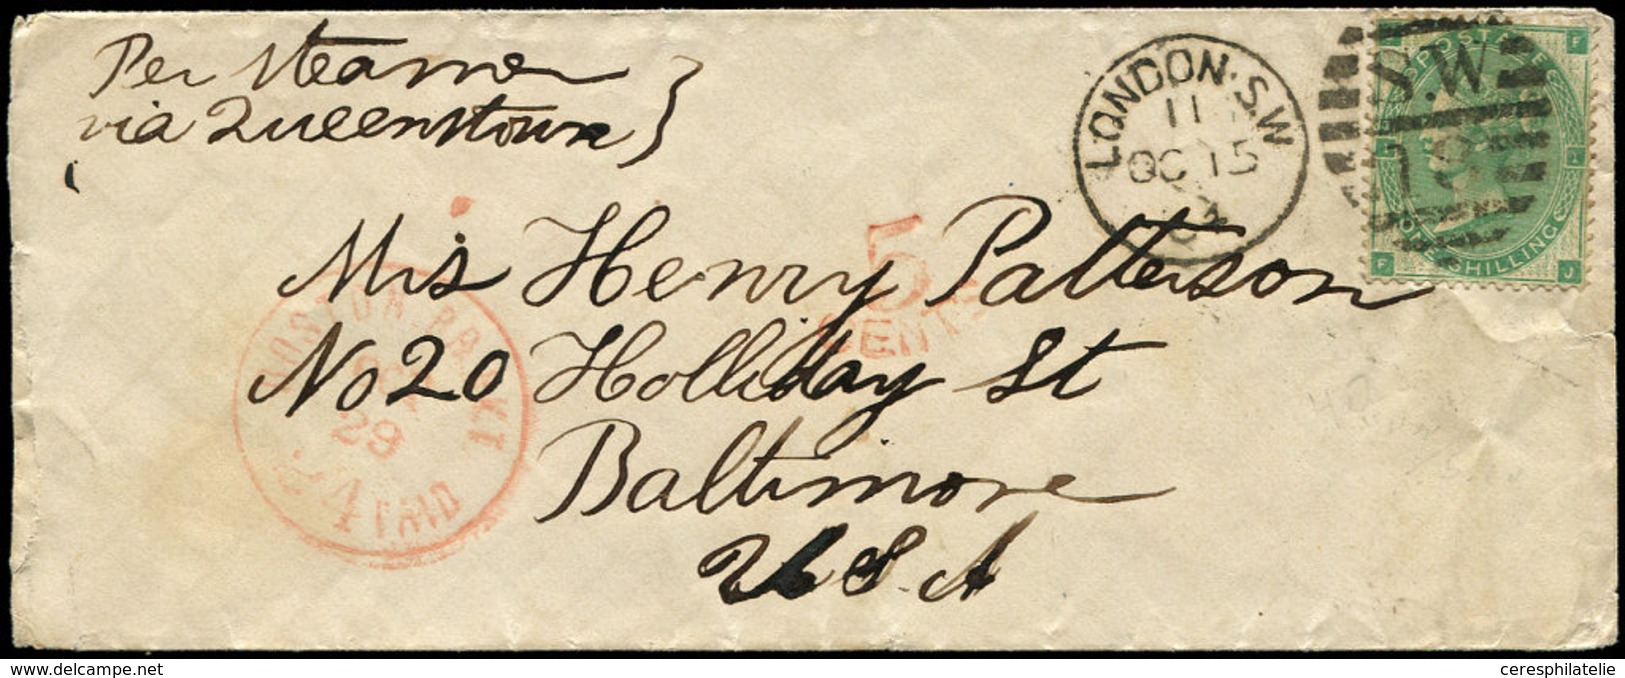 Per steamer
via Queenstown
LONDON·S.W
11
OC 15
S.W
18
POSTAGE
ONE SHILLING
F
F J
5
CENTS
Mrs Henry Patterson
No 20 Holliday St
Baltimore
U S A
BOSTON BR. PKT
29
PAID
www.delcampe.net
ceresphilatelie